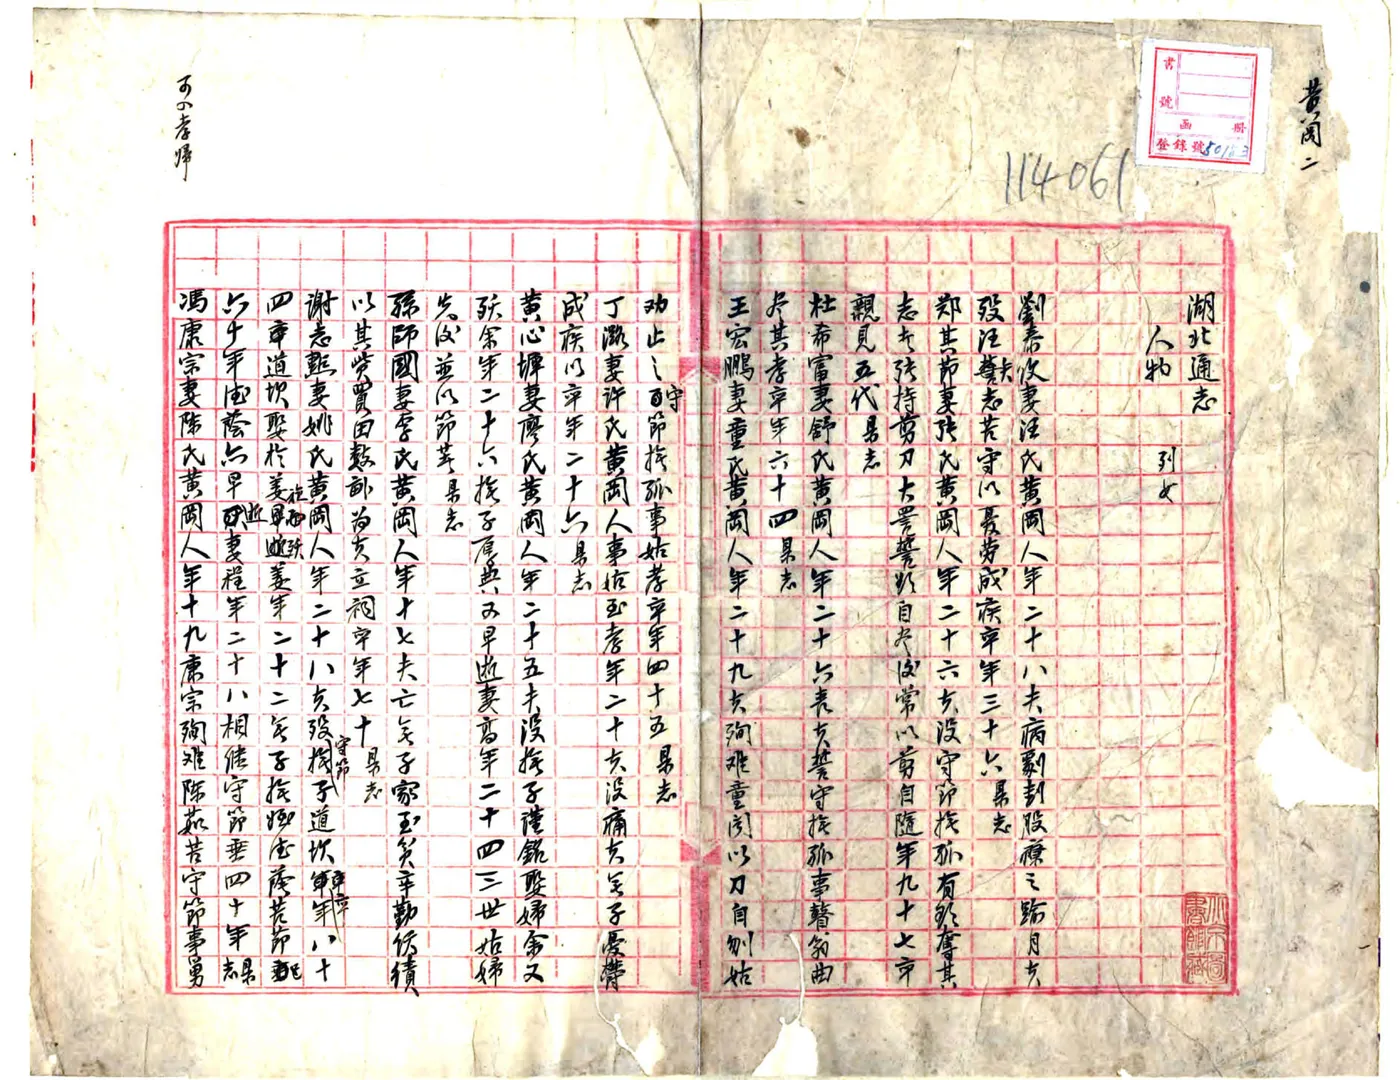 黄岡二
書號
函 冊
登錄號50163
114061
湖北通志
人物 列女
劉泰俊妻汪氏黄岡人年二十八夫病劇刲股療之踰月夫
殁汪誓夫志苦守以晨劳成疾卒年三十六 县志
郑其節妻張氏黄岡人年二十六夫没守節撫孤有欲奪其
志者張持剪刀大詈誓欲自尽后常以剪自隨年九十七卒
親見五代 县志
杜希富妻舒氏黄岡人年二十六丧夫誓守撫孤事瞽翁曲
尽其孝卒年六十四 县志
王宏鵬妻童氏黄岡人年二十九夫殉难童闻以刀自刎姑
劝止之守節撫孤事姑孝卒年四十五 县志
丁潞妻许氏黄岡人事姑至孝年二十夫没痛夫無子憂勞
成疾以卒年二十六 县志
黄心墀妻廖氏黄岡人年二十五夫没撫子瑾銘娶婦余又
殀余年二十六撫子厚典又早逝妻高年二十四三世姑婦
先后並以節著 县志
孫師國妻李氏黄岡人年十七夫亡無子家至贫辛勤纺績
以其貲買田数畝为夫立祠卒年七十 县志
謝志懿妻姚氏黄岡人年二十八夫殁守節撫子道坎卒年八十
四章道坎娶於姜姜年二十二無子撫姪德蔭苦節
六十年德蔭六早逝妻程年二十八相继守節垂四十年 县志
馮康宗妻陈氏黄岡人年十九康宗殉难陈茹苦守節事舅
可入孝婦